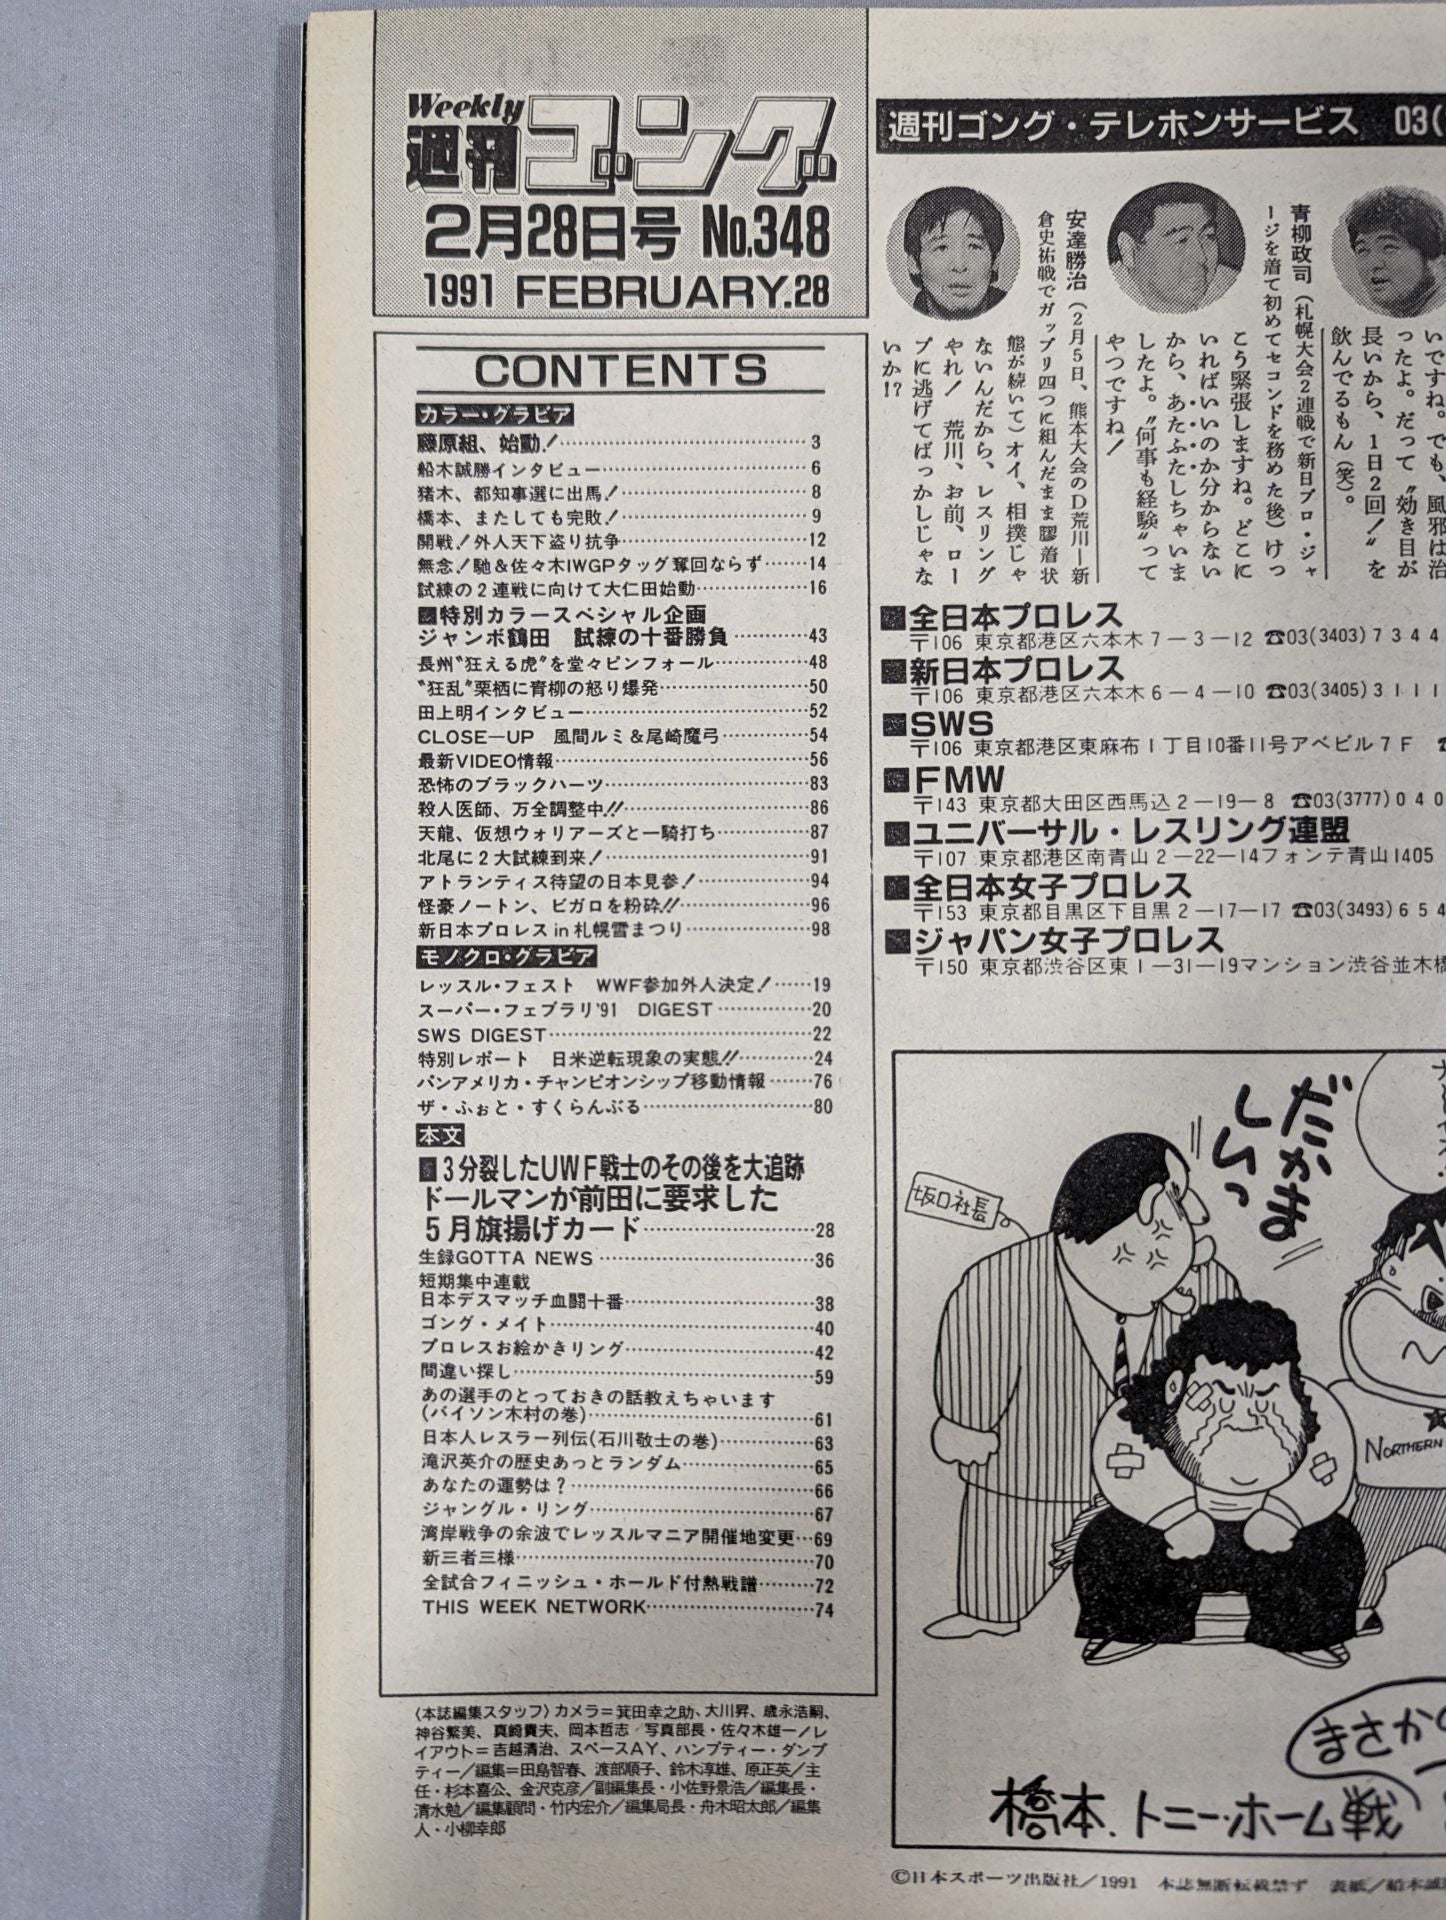 Weekly
週刊ゴング
2月28日号 No.348
1991 FEBRUARY.28
CONTENTS
カラー・グラビア
藤原組、始動!……3
船木誠勝インタビュー……6
猪木、都知事選に出馬!……8
橋本、またしても完敗!……9
開戦!外人天下盗り抗争……12
無念!馳&佐々木IWGPタッグ奪回ならず……14
試練の2連戦に向けて大仁田始動……16
特別カラースペシャル企画
ジャンボ鶴田 試練の十番勝負……43
長州〝狂える虎〟を堂々ピンフォール……48
〝狂乱〟栗栖に青柳の怒り爆発……50
田上明インタビュー……52
CLOSE—UP 風間ルミ&尾崎魔弓……54
最新VIDEO情報……56
恐怖のブラックハーツ……83
殺人医師、万全調整中!!……86
天龍、仮想ウォリアーズと一騎打ち……87
北尾に2大試練到来!……91
アトランティス待望の日本見参!……94
怪豪ノートン、ビガロを粉砕!!……96
新日本プロレスin札幌雪まつり……98
モノクロ・グラビア
レッスル・フェスト WWF参加外人決定!……19
スーパー・フェブラリ'91 DIGEST……20
SWS DIGEST……22
特別レポート 日米逆転現象の実態!!……24
パンアメリカ・チャンピオンシップ移動情報……76
ザ・ふぉと・すくらんぶる……80
本文
3分裂したUWF戦士のその後を大追跡
ドールマンが前田に要求した
5月旗揚げカード……28
生録GOTTA NEWS……36
短期集中連載
日本デスマッチ血闘十番……38
ゴング・メイト……40
プロレスお絵かきリング……42
間違い探し……59
あの選手のとっておきの話教えちゃいます
(バイソン木村の巻)……61
日本人レスラー列伝(石川敬士の巻)……63
滝沢英介の歴史あっとランダム……65
あなたの運勢は?……66
ジャングル・リング……67
湾岸戦争の余波でレッスルマニア開催地変更…69
新三者三様……70
全試合フィニッシュ・ホールド付熱戦譜……72
THIS WEEK NETWORK……74
〈本誌編集スタッフ〉カメラ=箕田幸之助、大川昇、歳永浩嗣、
神谷繁美、真崎貴夫、岡本哲志/写真部長・佐々木雄一/レ
イアウト=吉越清治、スペースAY、ハンプティー・ダンプ
ティー/編集=田島智春、渡部順子、鈴木淳雄、原正英/主
任・杉本喜公、金沢克彦/副編集長・小佐野景浩/編集長・
清水勉/編集顧問・竹内宏介/編集局長・舟木昭太郎/編集
人・小柳幸郎
週刊ゴング・テレホンサービス 03(
いですね。でも、風邪は治
ったよ。だって〝効き目が
長いから、1日2回!〟を
飲んでるもん(笑)。
青柳政司(札幌大会2連戦で新日プロ・ジャ
ージを着て初めてセコンドを務めた後)けっ
こう緊張しますね。どこに
いればいいのか分からない
から、あたふたしちゃいま
したよ。〝何事も経験〟って
やつですね!
安達勝治(2月5日、熊本大会のD荒川―新
倉史祐戦でガップリ四つに組んだまま膠着状
態が続いて)オイ、相撲じゃ
ないんだから、レスリング
やれ! 荒川、お前、ロー
プに逃げてばっかしじゃな
いか!?
■全日本プロレス
〒106 東京都港区六本木7—3—12 ☎03(3403)7344
■新日本プロレス
〒106 東京都港区六本木6—4—10 ☎03(3405)3111
■SWS
〒106 東京都港区東麻布1丁目10番11号アベビル7F ☎
■FMW
〒143 東京都大田区西馬込2—19—8 ☎03(3777)040
■ユニバーサル・レスリング連盟
〒107 東京都港区南青山2—22—14フォンテ青山1405
■全日本女子プロレス
〒153 東京都目黒区下目黒2—17—17 ☎03(3493)654
■ジャパン女子プロレス
〒150 東京都渋谷区東1—31—19マンション渋谷並木橋
だかま
しいっ
坂口社長
NORTHERN
まさかの
橋本、トニー・ホーム戦
©日本スポーツ出版社/1991 本誌無断転載禁ず 表紙/船木誠